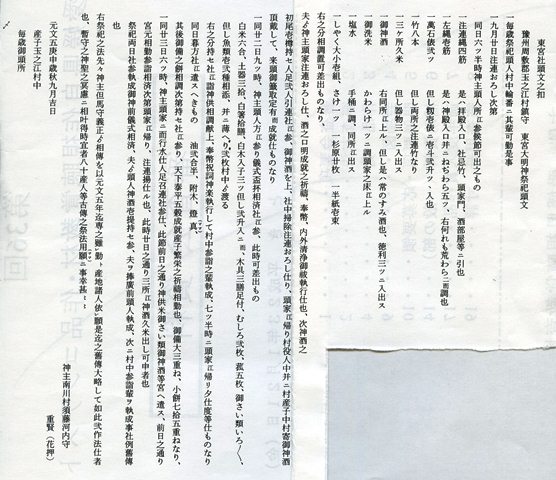 東宮社頭文之扣
豫州周敷郡玉之江村鎮守 東宮大明神祭祀頭文
毎歳祭祀頭人村中輪番ニ其輩可勤是事
一九月廿日注連おろし次第
同日六ツ半時神主頭人所江参候節可出之もの
一注連縄四筋 是ハ拝殿入口、社忌竹、頭家門、酒部屋等ニ引也
一左縄壱筋 是ハ拝殿入口并ニねぢから五ツ、右何れも荒わら二而調也
一萬石俵弐ツ 但し籾壱俵ニ壱斗弐升ツヽ入也
一竹八本 但し両所之注連竹なり
一三ケ所久米 但し器物三ツニ入出ス
一御神酒 右同所江上ル、但し是ハ常のすみ酒也、徳利三ツニ入出ス
一御洗米 かわらけ一ツニ調頭家之床江上ル
一塩水 手桶ニ調、同所江出ス
一しやく大小壱組、 さけ一ツ、一杉原廿枚 一半紙壱束
右之分相調置可差出ものなり、
夫ゟ神主頭家注連おろし仕、酒之口明成就之祈禱、奉幣、内外清浄御祓執行仕也、次神酒之
初尾壱樽持セ人足弐人引連社江参、御神酒を上、社中掃除注連おろし仕り、頭家江帰り村役人中并ニ村産子中村寄御神酒
頂戴して、來頭御籤取定有而成就仕ものなり
一同廿二日九ツ時、神主頭人方江参り儀式盃相済社江参、此時可差出もの
白米六合、土器三拾、白箸拾膳、白木入子三ツ但し弐升入ニ而、木具三膳足付、むしろ弐枚、菰五枚、御さい類いろ〳〵、
但し魚類壱弐種相添、并ニ薄べり弐枚村中ゟ渡る
右之分持セ社江詣神供相調献上、奉幣祝詞神楽執行して村中参詣之輩執成、七ツ半時ニ頭家江帰り夕仕度等仕ものなり
同日暮方社江遣スへきもの 油弐合半、附木、燈真、
其後御備ニ餅相調次第持セ社江参り、天下泰平五穀成就産子繁栄之祈禱相勤也、御備大三重ね、小餅七拾五重ねなり、
一同廿三日六ツ時、神主頭家ニ而行水仕人足召連社参仕、此節前日之通り神供米御さい類御神酒等宮へ遣ス、前日之通り
宮元相勤参詣相済次第頭家江帰り、注連揚仕ル也、此時廿日之通り三所江神酒久米出し可申者也
祭祀両日社参執成御神前儀式相済、夫ゟ頭人神酒壱提持セ参、夫ヲ捧廣前頭人執成、次ニ村中参詣輩ヲ執成事社例舊傳
也
右祭祀之法先々神主但馬守義正ゟ相傳を以元文五年迄専之雖勤卜産地諸人依願是迄之舊傳大略して如此弐作法仕者
也、暫守之神聖之冥慮ニ相叶得時宜者八十産人等古傳之祭法用願ニ事幸甚
元文五庚申歳秋九月吉日 神主南川村須藤河内守
重賢（花押）
産子玉之江村中
毎歳御頭所